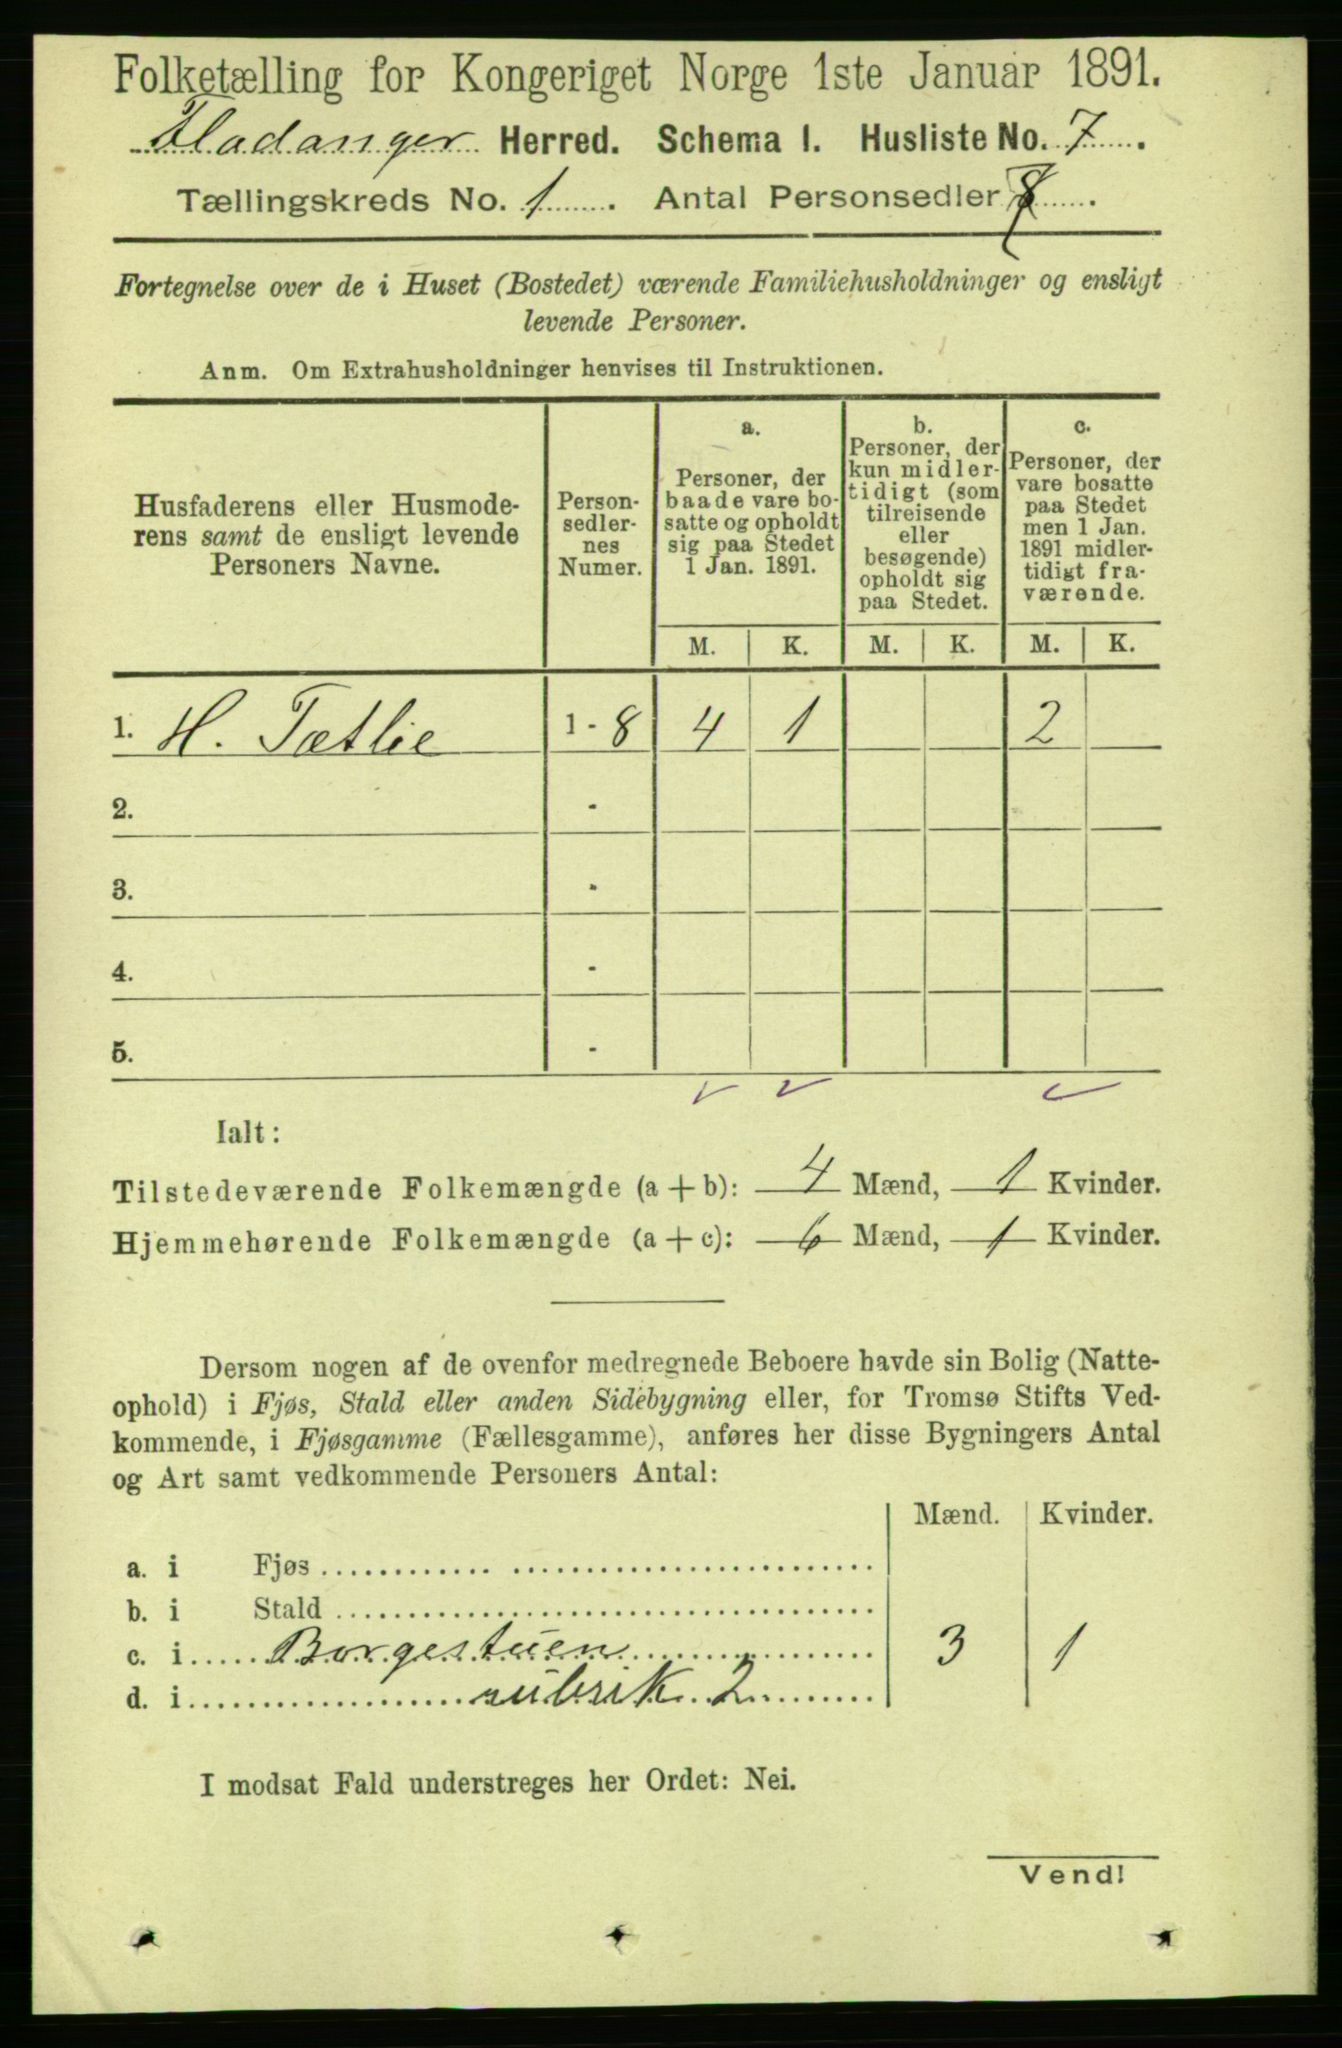 Folketælling for Kongeriget Norge 1ste Januar 1891.
Fladanger Herred. Schema 1. Husliste No. 7.
Tællingskreds No. 1. Antal Personsedler 8.
Fortegnelse over de i Huset (Bostedet) værende Familiehusholdninger og ensligt
levende Personer.
Anm. Om Extrahusholdninger henvises til Instruktionen.
Husfaderens eller Husmode-
rens samt de ensligt levende
Personers Navne.
Person-
sedler-
nes
Numer.
a.
Personer, der
baade vare bo-
satte og opholdt
sig paa Stedet
1 Jan. 1891.
b.
Personer, der
kun midler-
tidigt (som
tilreisende
eller
besøgende)
opholdt sig
paa Stedet.
c.
Personer, der
vare bosatte
paa Stedet
men 1 Jan.
1891 midler-
tidigt fra-
værende.
M. K. M. K. M. K.
1. H. Tætlie 1 - 8 4 1 2
2. -
3. -
4. -
5. -
Ialt:
Tilstedeværende Folkemængde (a + b): 4 Mænd, 1 Kvinder.
Hjemmehørende Folkemængde (a + c): 6 Mænd, 1 Kvinder.
Dersom nogen af de ovenfor medregnede Beboere havde sin Bolig (Natte-
ophold) i Fjøs, Stald eller anden Sidebygning eller, for Tromsø Stifts Ved-
kommende, i Fjøsgamme (Fællesgamme), anføres her disse Bygningers Antal
og Art samt vedkommende Personers Antal:
Mænd. Kvinder.
a. i Fjøs
b. i Stald
c. i Borgestuen 3 1
d. i rubrik 2
I modsat Fald understreges her Ordet: Nei.
Vend!